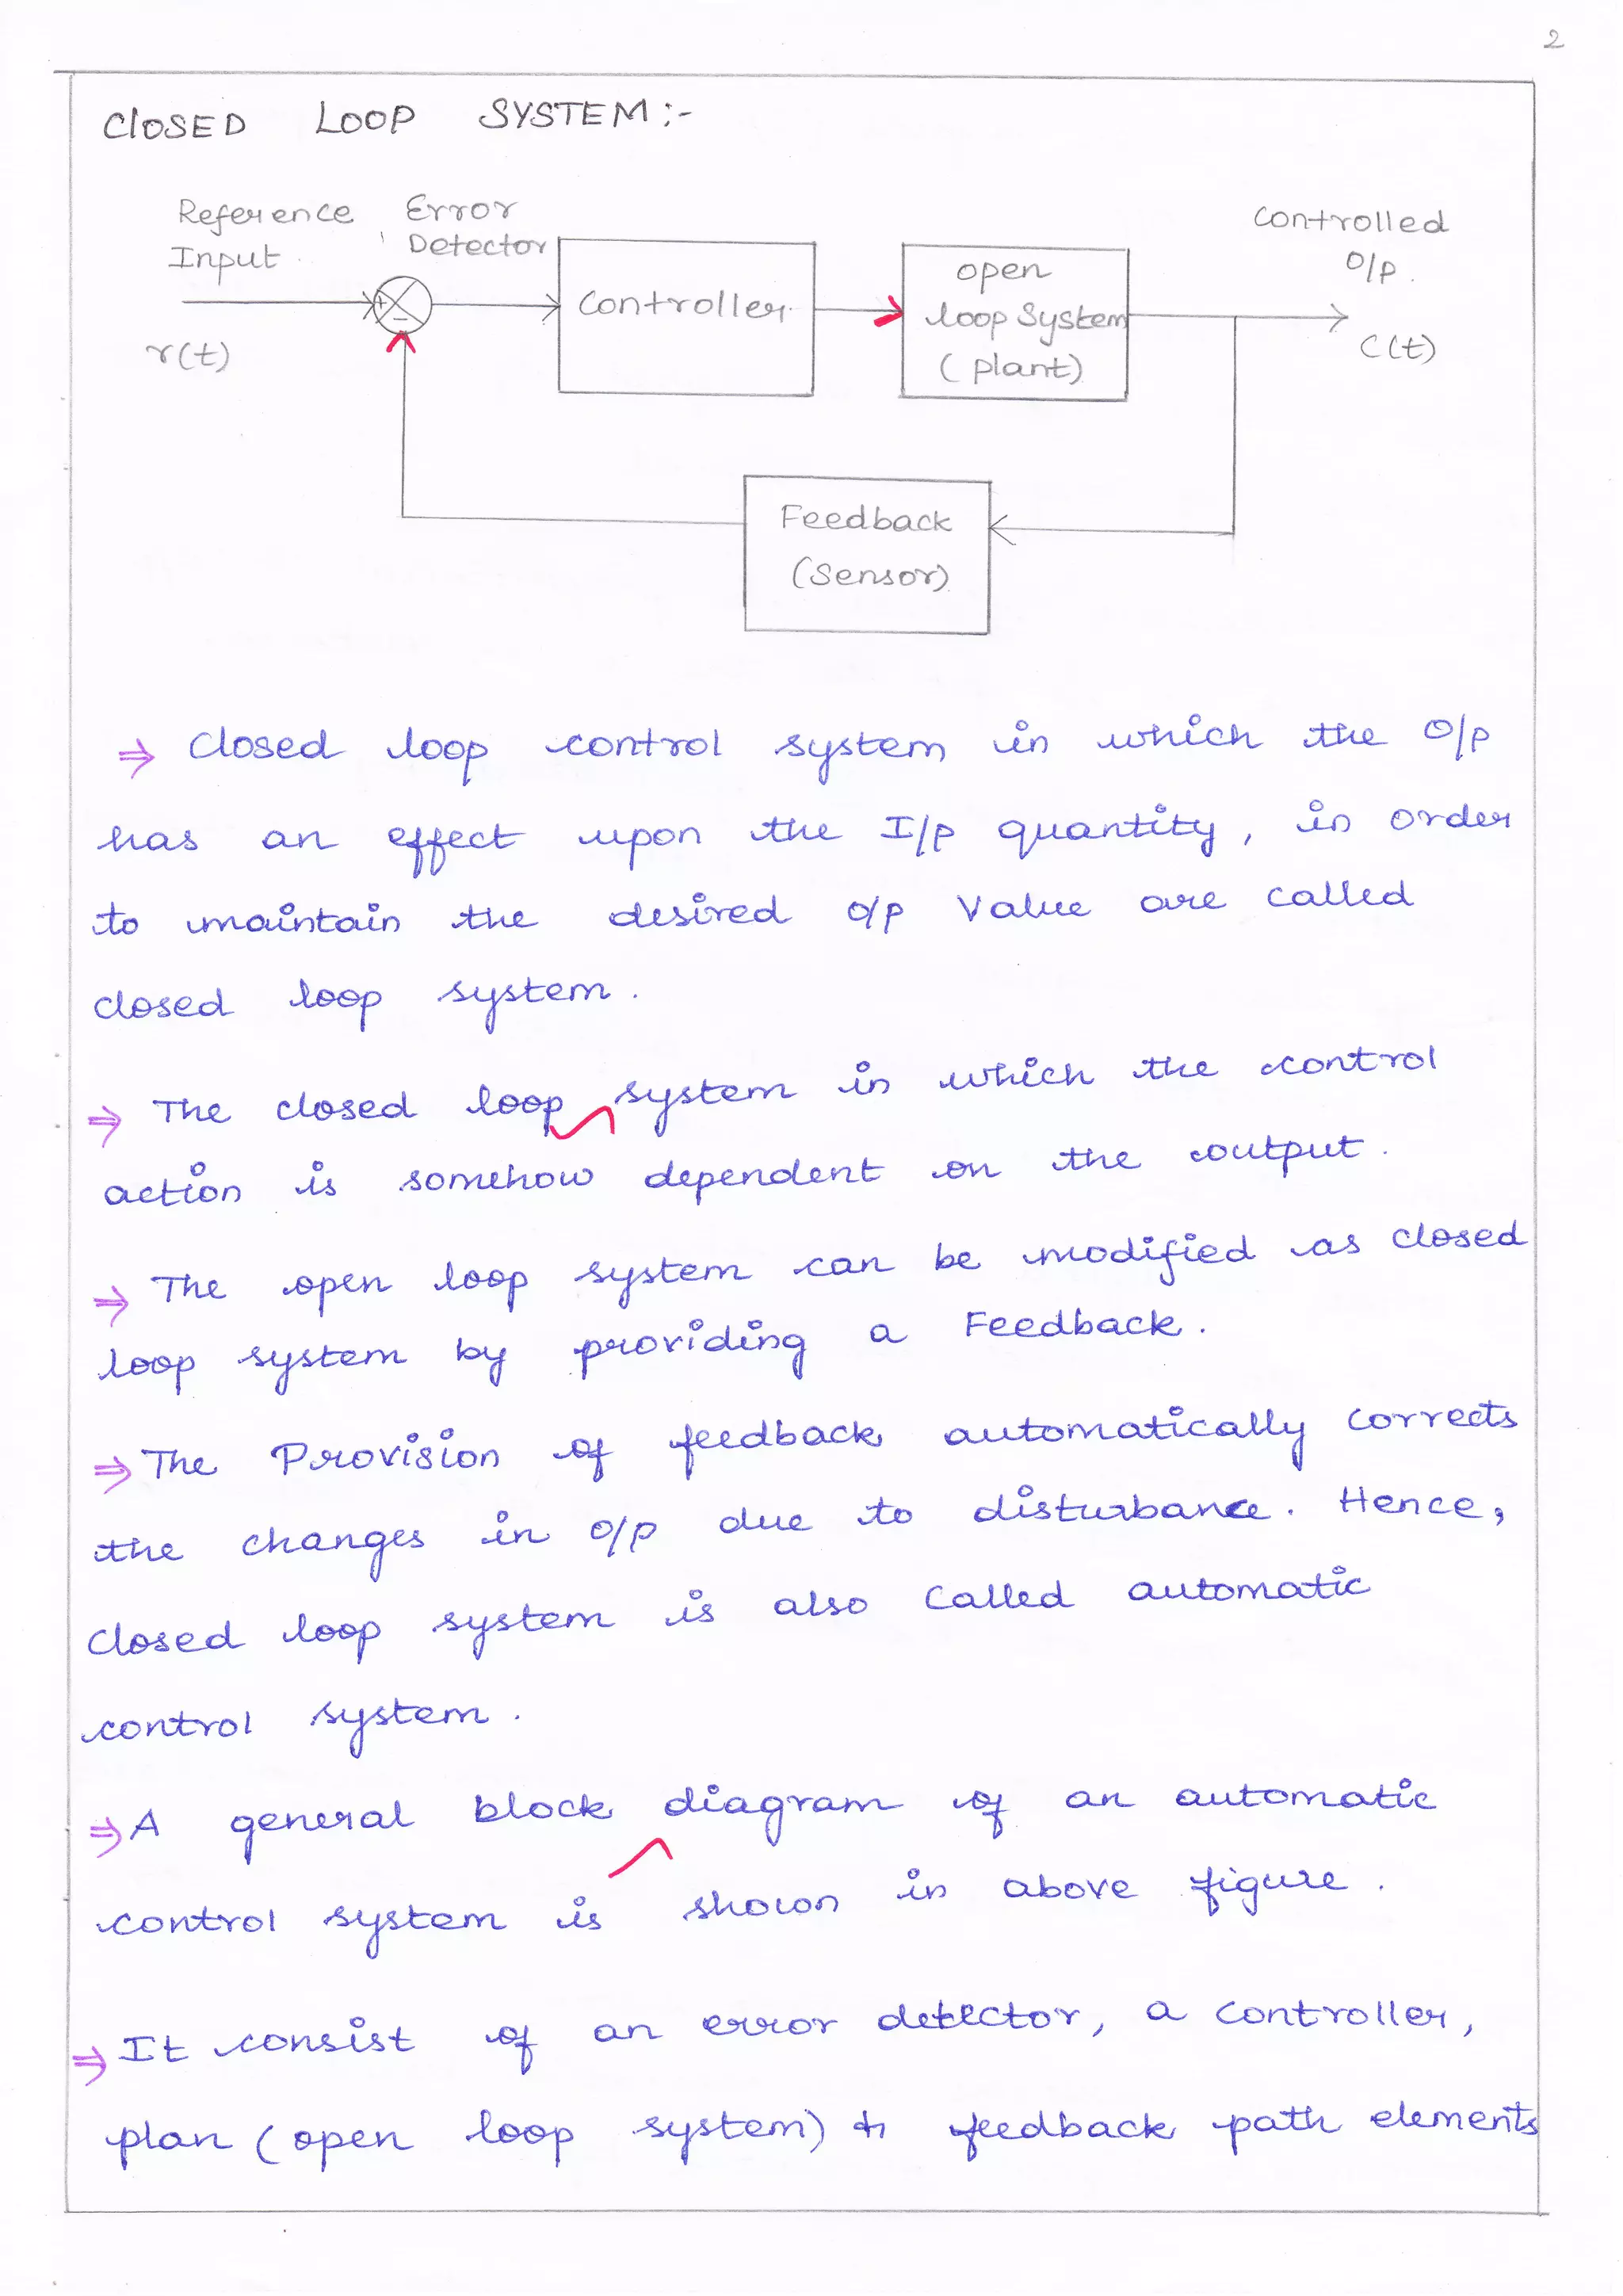 2
ClOSED LOOP SYSTEM :-
Reference Error
Input Detector
Controlled
O/p .
+
-
Controller
open
loop System
( plant)
r(t)
C(t)
Feedback
(Sensor)
⇒ Closed loop control system in which the O/p
has an effect upon the I/p quantity , in order
to maintain the desired o/p Value are called
closed loop system .
⇒ The closed loop system in which the control
action is somehow dependent on the output .
⇒ The open loop system can be modified as closed
loop system by providing a Feedback .
⇒ The Provision of feedback automatically corrects
the changes in o/p due to disturbance . Hence ,
Closed loop system is also Called automatic
control system .
⇒ A general block diagram of an automatic
control system is shown in above figure .
⇒ It consist of an error detector , a Controller ,
plan ( open loop system) & feedback path elements